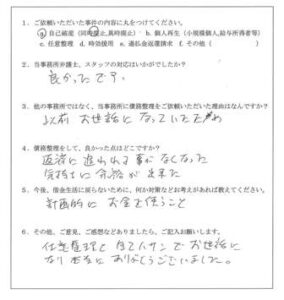 1. ご依頼いただいた事件の内容に丸をつけてください。
a 自己破産（同時廃止,異時廃止） b. 個人再生（小規模個人,給与所得者等）
c. 任意整理 d. 時効援用 e. 過払金返還請求 f. その他（ ）
2. 当事務所弁護士、スタッフの対応はいかがでしたか？
良かったです。
3. 他の事務所ではなく、当事務所に債務整理をご依頼いただいた理由はなんですか？
以前 お世話になっていた為
4. 債務整理をして、良かった点はどこですか？
返済に追われる事がなくなった
気持ちに余裕が出来た
5. 今後、借金生活に戻らないために、何か対策などお考えがあれば教えてください。
計画的にお金を使うこと
6. その他、ご意見、ご感想などありましたら、ご記入お願いします。
任意整理と自己ハサンでお世話に
なり本当にありがとうございました。